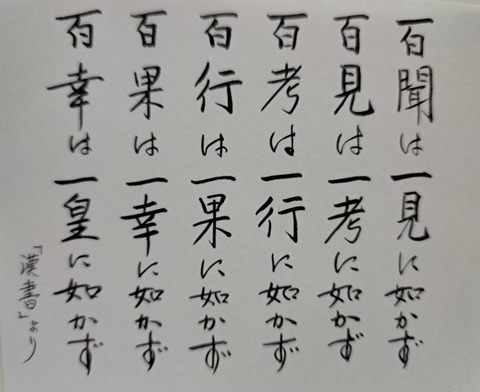 百聞は一見に如かず
百見は一考に如かず
百考は一行に如かず
百行は一果に如かず
百果は一幸に如かず
百幸は一皇に如かず
「漢書」より